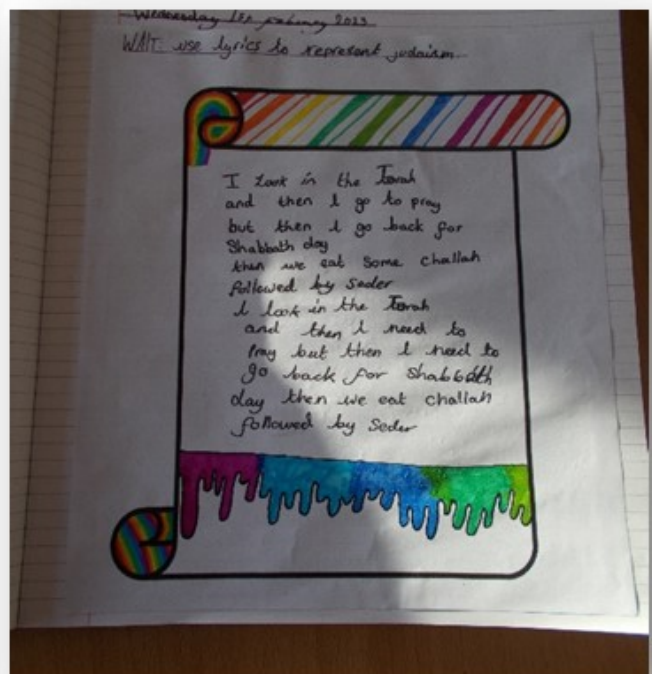 Wednesday 1st February 2023
WALT: use lyrics to represent judaism.
I Look in the Torah
and then I go to pray
but then I go back for
Shabbath day
then we eat some challah
followed by seder
I look in the Torah
and then I need to
pray but then I need to
go back for Shabbath
day then we eat challah
followed by Seder